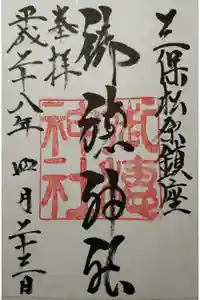 三保松原鎮座
御穂神社
奉拝
平成二十八年四月二十三日
御穂神社